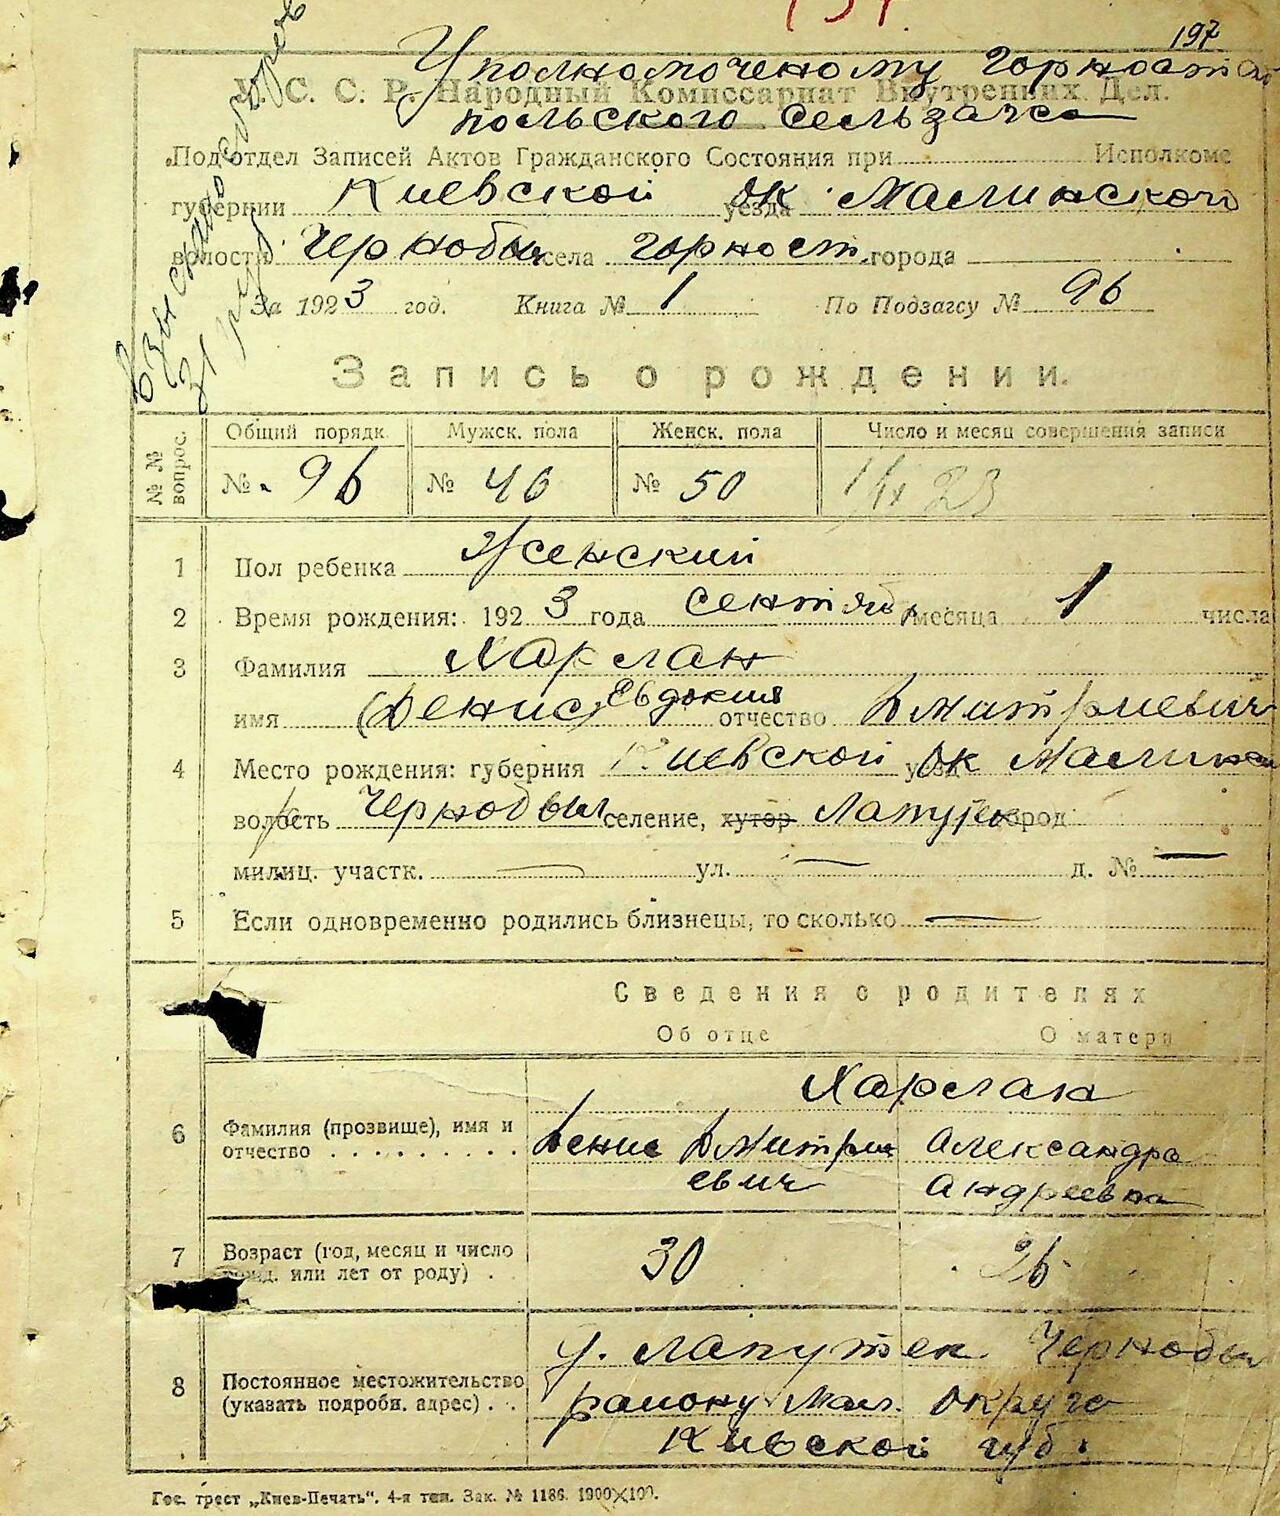 197
Уполномоченому Горностай
У. С. С. Р. Народный Комиссариат Внутренних Дел.
польского сельзагса
Подотдел Записей Актов Гражданского Состояния при Исполкоме
губернии Киевской уезда ок Малинского
волости Чернобыл села Горност. города —
За 1923 год. Книга № 1 По Подзагсу № 96
взыскано сбора
31 руб
Запись о рождении.
№ № вопрос.
Общий порядк Мужск. пола Женск. пола Число и месяц совершения записи
№ 96 № 46 № 50 23
1 Пол ребенка Женский
2 Время рождения: 1923 года сентяб месяца 1 числа
3 Фамилия Харлан
имя (Денис) Евдокия отчество Дмитриевич
4 Место рождения: губерния Киевской уезд ок Малинск
волость Чернобыл селение, хутор город
милиц. участк. — ул. — д. № —
5 Если одновременно родились близнецы, то сколько —
Сведения о родителях
Об отце О матери
Харлан
6 Фамилия (прозвище), имя и отчество . . . . . . . . . Денис Дмитри Александра
евич Андреевна
7 Возраст (год, месяц и число рожд. или лет от роду) . 30 26
8 Постоянное местожительство (указать подробн. адрес) . .
у. Лапутек Чернобы
району Мал. округа
Киевской губ.
Гос. трест „Киев-Печать“. 4-я тип. Зак. № 1186. 1900×100.